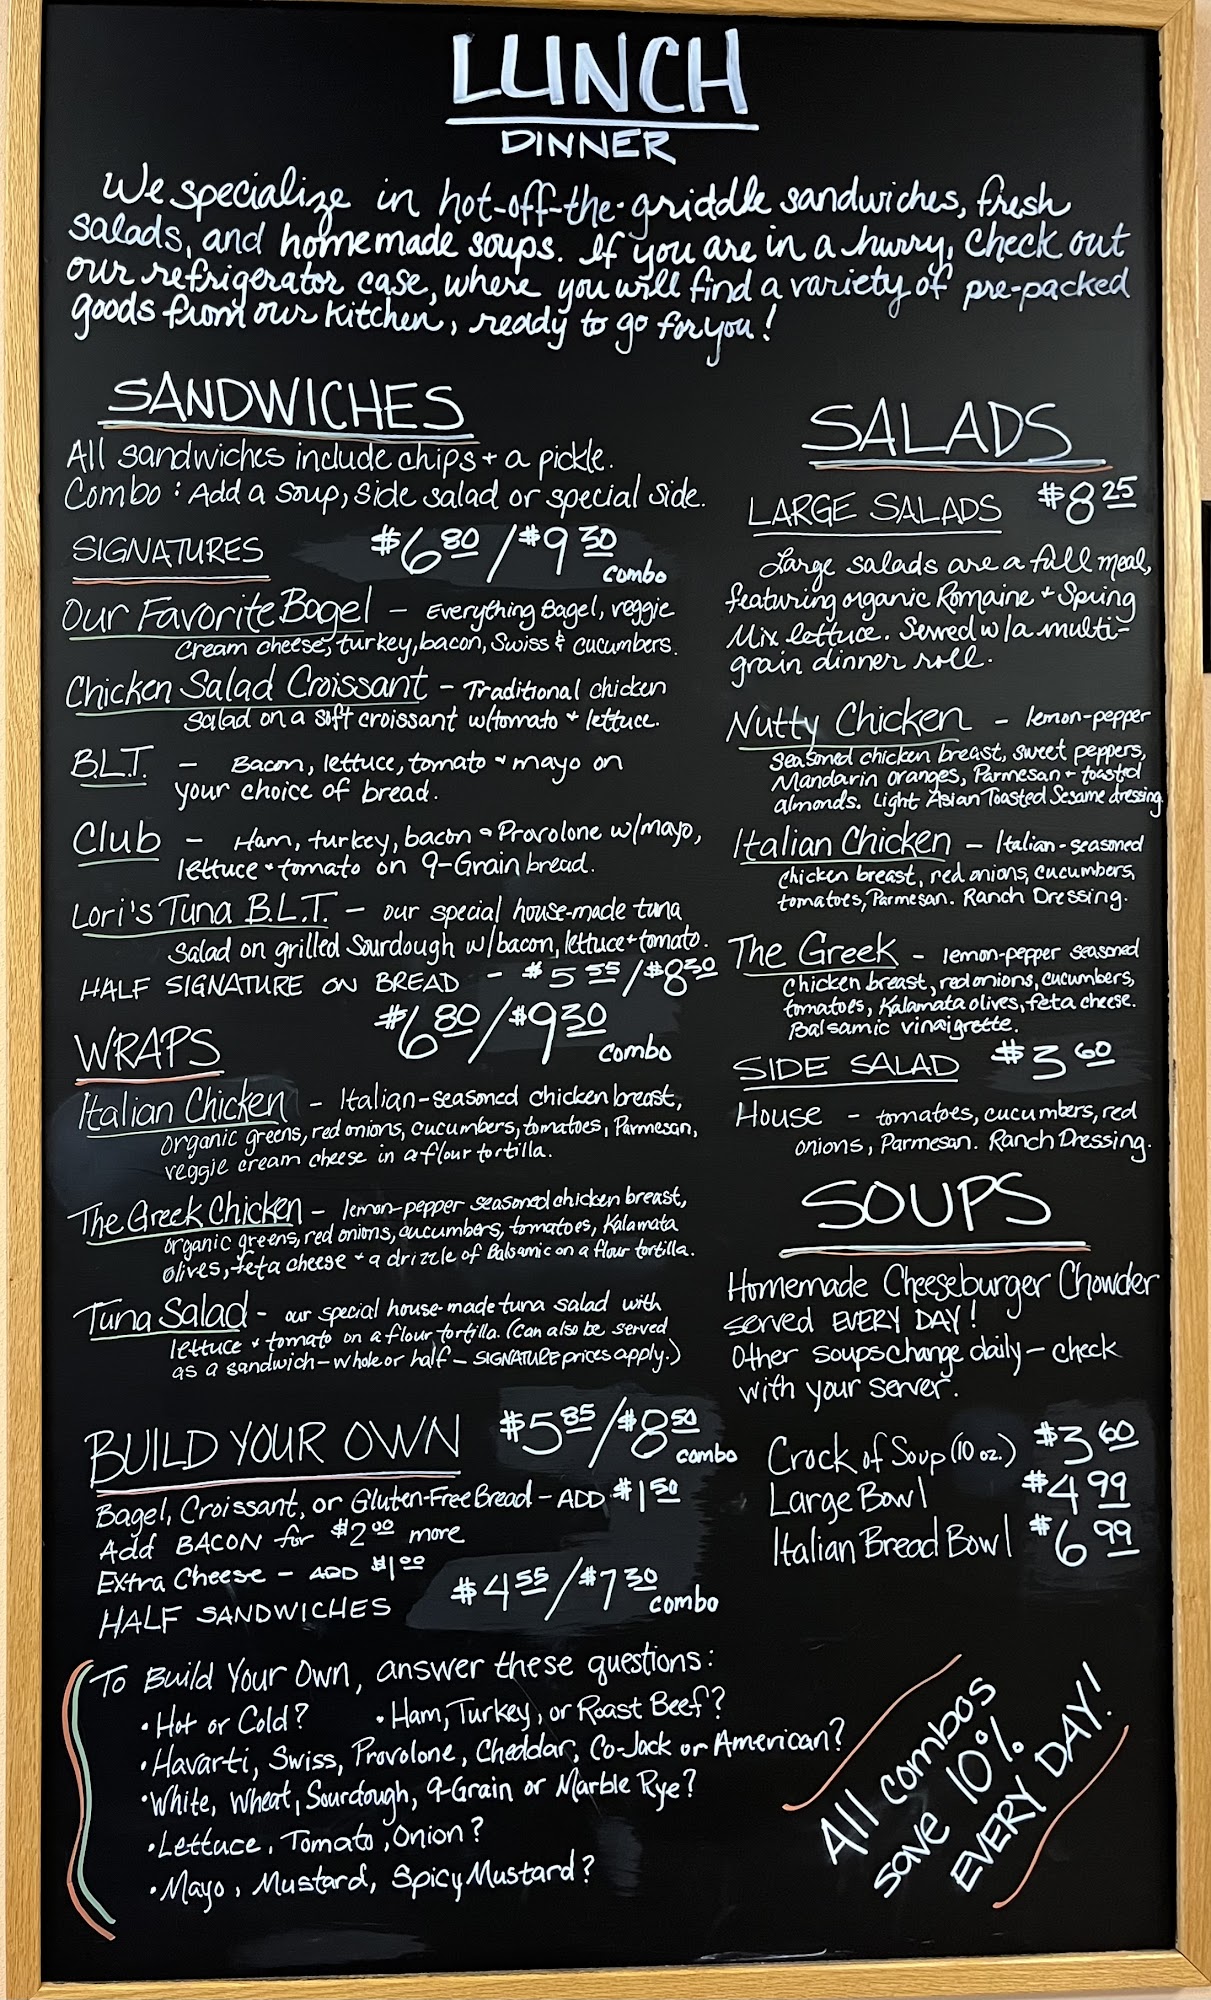 LUNCH
DINNER
We specialize in hot-off-the-griddle sandwiches, fresh
salads, and homemade soups. If you are in a hurry, check out
our refrigerator case, where you will find a variety of pre-packed
goods from our kitchen, ready to go for you!
SANDWICHES
All sandwiches include chips + a pickle.
Combo: Add a soup, side salad or special side.
SIGNATURES $6 80 / $9 30 combo
Our Favorite Bagel - Everything Bagel, veggie
cream cheese, turkey, bacon, Swiss & cucumbers.
Chicken Salad Croissant - Traditional chicken
salad on a soft croissant w/tomato + lettuce.
B.L.T. - Bacon, lettuce, tomato + mayo on
your choice of bread.
Club - Ham, turkey, bacon + Provolone w/mayo,
lettuce + tomato on 9-Grain bread.
Lori's Tuna B.L.T. - our special house-made tuna
salad on grilled Sourdough w/bacon, lettuce + tomato.
HALF SIGNATURE ON BREAD - $5 55 / $8 30
WRAPS $6 80 / $9 30 combo
Italian Chicken - Italian-seasoned chicken breast,
organic greens, red onions, cucumbers, tomatoes, Parmesan,
veggie cream cheese in a flour tortilla.
The Greek Chicken - lemon-pepper seasoned chicken breast,
organic greens, red onions, cucumbers, tomatoes, Kalamata
olives, feta cheese + a drizzle of Balsamic on a flour tortilla.
Tuna Salad - our special house-made tuna salad with
lettuce + tomato on a flour tortilla. (Can also be served
as a sandwich - whole or half - SIGNATURE prices apply.)
BUILD YOUR OWN $5 85 / $8 50 combo
Bagel, Croissant, or Gluten-Free Bread - ADD $1 50
Add BACON for $2 00 more
Extra Cheese - ADD $1 00
HALF SANDWICHES $4 55 / $7 30 combo
To Build Your Own, answer these questions:
• Hot or Cold? • Ham, Turkey, or Roast Beef?
• Havarti, Swiss, Provolone, Cheddar, Co-Jack or American?
• White, Wheat, Sourdough, 9-Grain or Marble Rye?
• Lettuce, Tomato, Onion?
• Mayo, Mustard, Spicy Mustard?
SALADS
LARGE SALADS $8 25
Large salads are a full meal,
featuring organic Romaine + Spring
Mix lettuce. Served w/a multi-
grain dinner roll.
Nutty Chicken - lemon-pepper
seasoned chicken breast, sweet peppers,
Mandarin oranges, Parmesan + toasted
almonds. Light Asian Toasted Sesame dressing
Italian Chicken - Italian-seasoned
chicken breast, red onions, cucumbers,
tomatoes, Parmesan. Ranch Dressing.
The Greek - lemon-pepper seasoned
chicken breast, red onions, cucumbers,
tomatoes, Kalamata olives, feta cheese.
Balsamic vinaigrette.
SIDE SALAD $3 60
House - tomatoes, cucumbers, red
onions, Parmesan. Ranch Dressing.
SOUPS
Homemade Cheeseburger Chowder
served EVERY DAY!
Other soups change daily - check
with your server.
Crock of Soup (10 oz.) $3 60
Large Bowl $4 99
Italian Bread Bowl $6 99
All combos
save 10%
EVERY DAY!